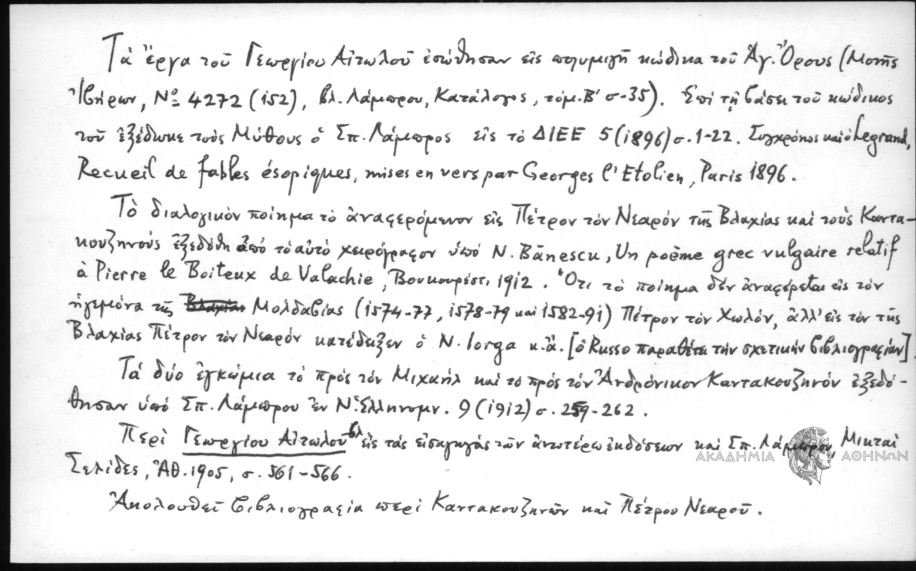 Τὰ ἔργα τοῦ Γεωργίου Αἰτωλοῦ ἐσώθησαν εἰς συμμιγῆ κώδικα τοῦ Ἁγ. Ὄρους (Μονῆς
Ἰβήρων, Νο 4272 (152), βλ. Λάμπρου, Κατάλογος, τόμ. Β' σ. 35). Ἐπὶ τῇ βάσει τοῦ κώδικος
τοῦ ἐξέδωκε τοὺς Μύθους ὁ Σπ. Λάμπρος εἰς τὸ ΔΙΕΕ 5 (1896) σ. 1-22. Συγχρόνως καὶ ὁ Legrand,
Recueil de fables ésopiques, mises en vers par Georges l'Etolien, Paris 1896.
Τὸ διαλογικὸν ποίημα τὸ ἀναφερόμενον εἰς Πέτρον τὸν Νεαρὸν τῆς Βλαχίας καὶ τοὺς Καντα-
κουζηνοὺς ἐξεδόθη ἀπὸ τὸ αὐτὸ χειρόγραφον ὑπὸ N. Bănescu, Un poème grec vulgaire relatif
à Pierre le Boiteux de Valachie, Βουκουρέστ. 1912. Ὅτι τὸ ποίημα δὲν ἀναφέρεται εἰς τὸν
ἡγεμόνα τῆς Βλαχίας Μολδαβίας (1574-77, 1578-79 καὶ 1582-91) Πέτρον τὸν Χωλόν, ἀλλ' εἰς τὸν τῆς
Βλαχίας Πέτρον τὸν Νεαρὸν κατέδειξεν ὁ N. Iorga κ.ἄ. [ὁ Russo παραθέτει τὴν σχετικὴν βιβλιογραφίαν].
Τὰ δύο ἐγκώμια τὸ πρὸς τὸν Μιχαὴλ καὶ τὸ πρὸς τὸν Ἀνδρόνικον Καντακουζηνὸν ἐξεδό-
θησαν ὑπὸ Σπ. Λάμπρου ἐν Ν. Ἑλληνομν. 9 (1912) σ. 259-262.
Περὶ Γεωργίου Αἰτωλοῦ βλ. εἰς τὰς εἰσαγωγὰς τῶν ἀνωτέρω ἐκδόσεων καὶ Σπ. Λάμπρου, Μικταὶ
Σελίδες, Ἀθ. 1905, σ. 561-566.
Ἀκολουθεῖ βιβλιογραφία περὶ Καντακουζηνῶν καὶ Πέτρου Νεαροῦ.
ΑΚΑΔΗΜΙΑ ΑΘΗΝΩΝ